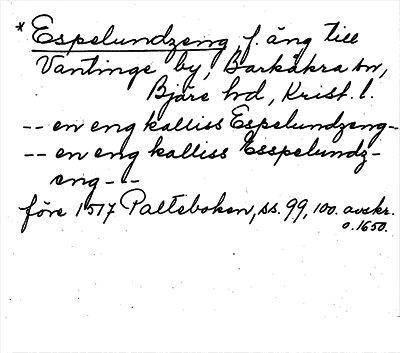 * Espelundzeng, f. äng till
Vantinge by, Barkåkra sn,
Bjäre hd, Krist. l.
-- en eng kalliss Espelundzeng--
-- en eng kalliss Esspelundz-
eng---
före 1517 Palteboken, ss. 99, 100. avskr.
o. 1650.